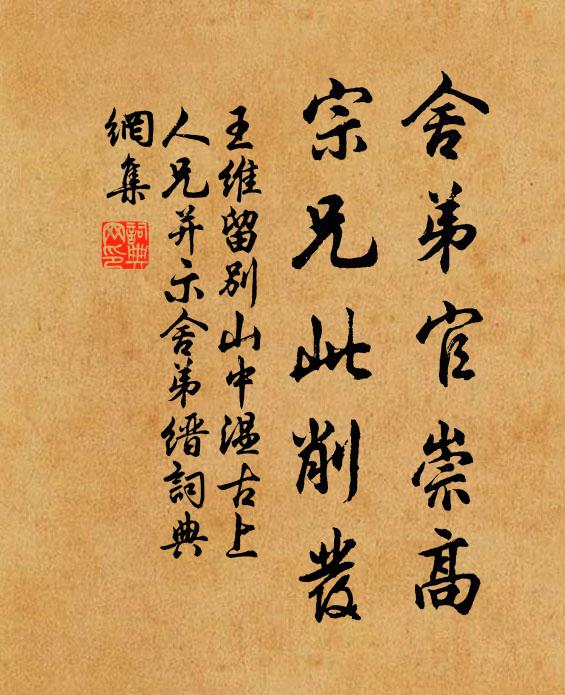 舍弟官崇高
宗兄此削發
王維留別山中溫古上
人兄并示舍弟縉詞典
網集
詞典
網印